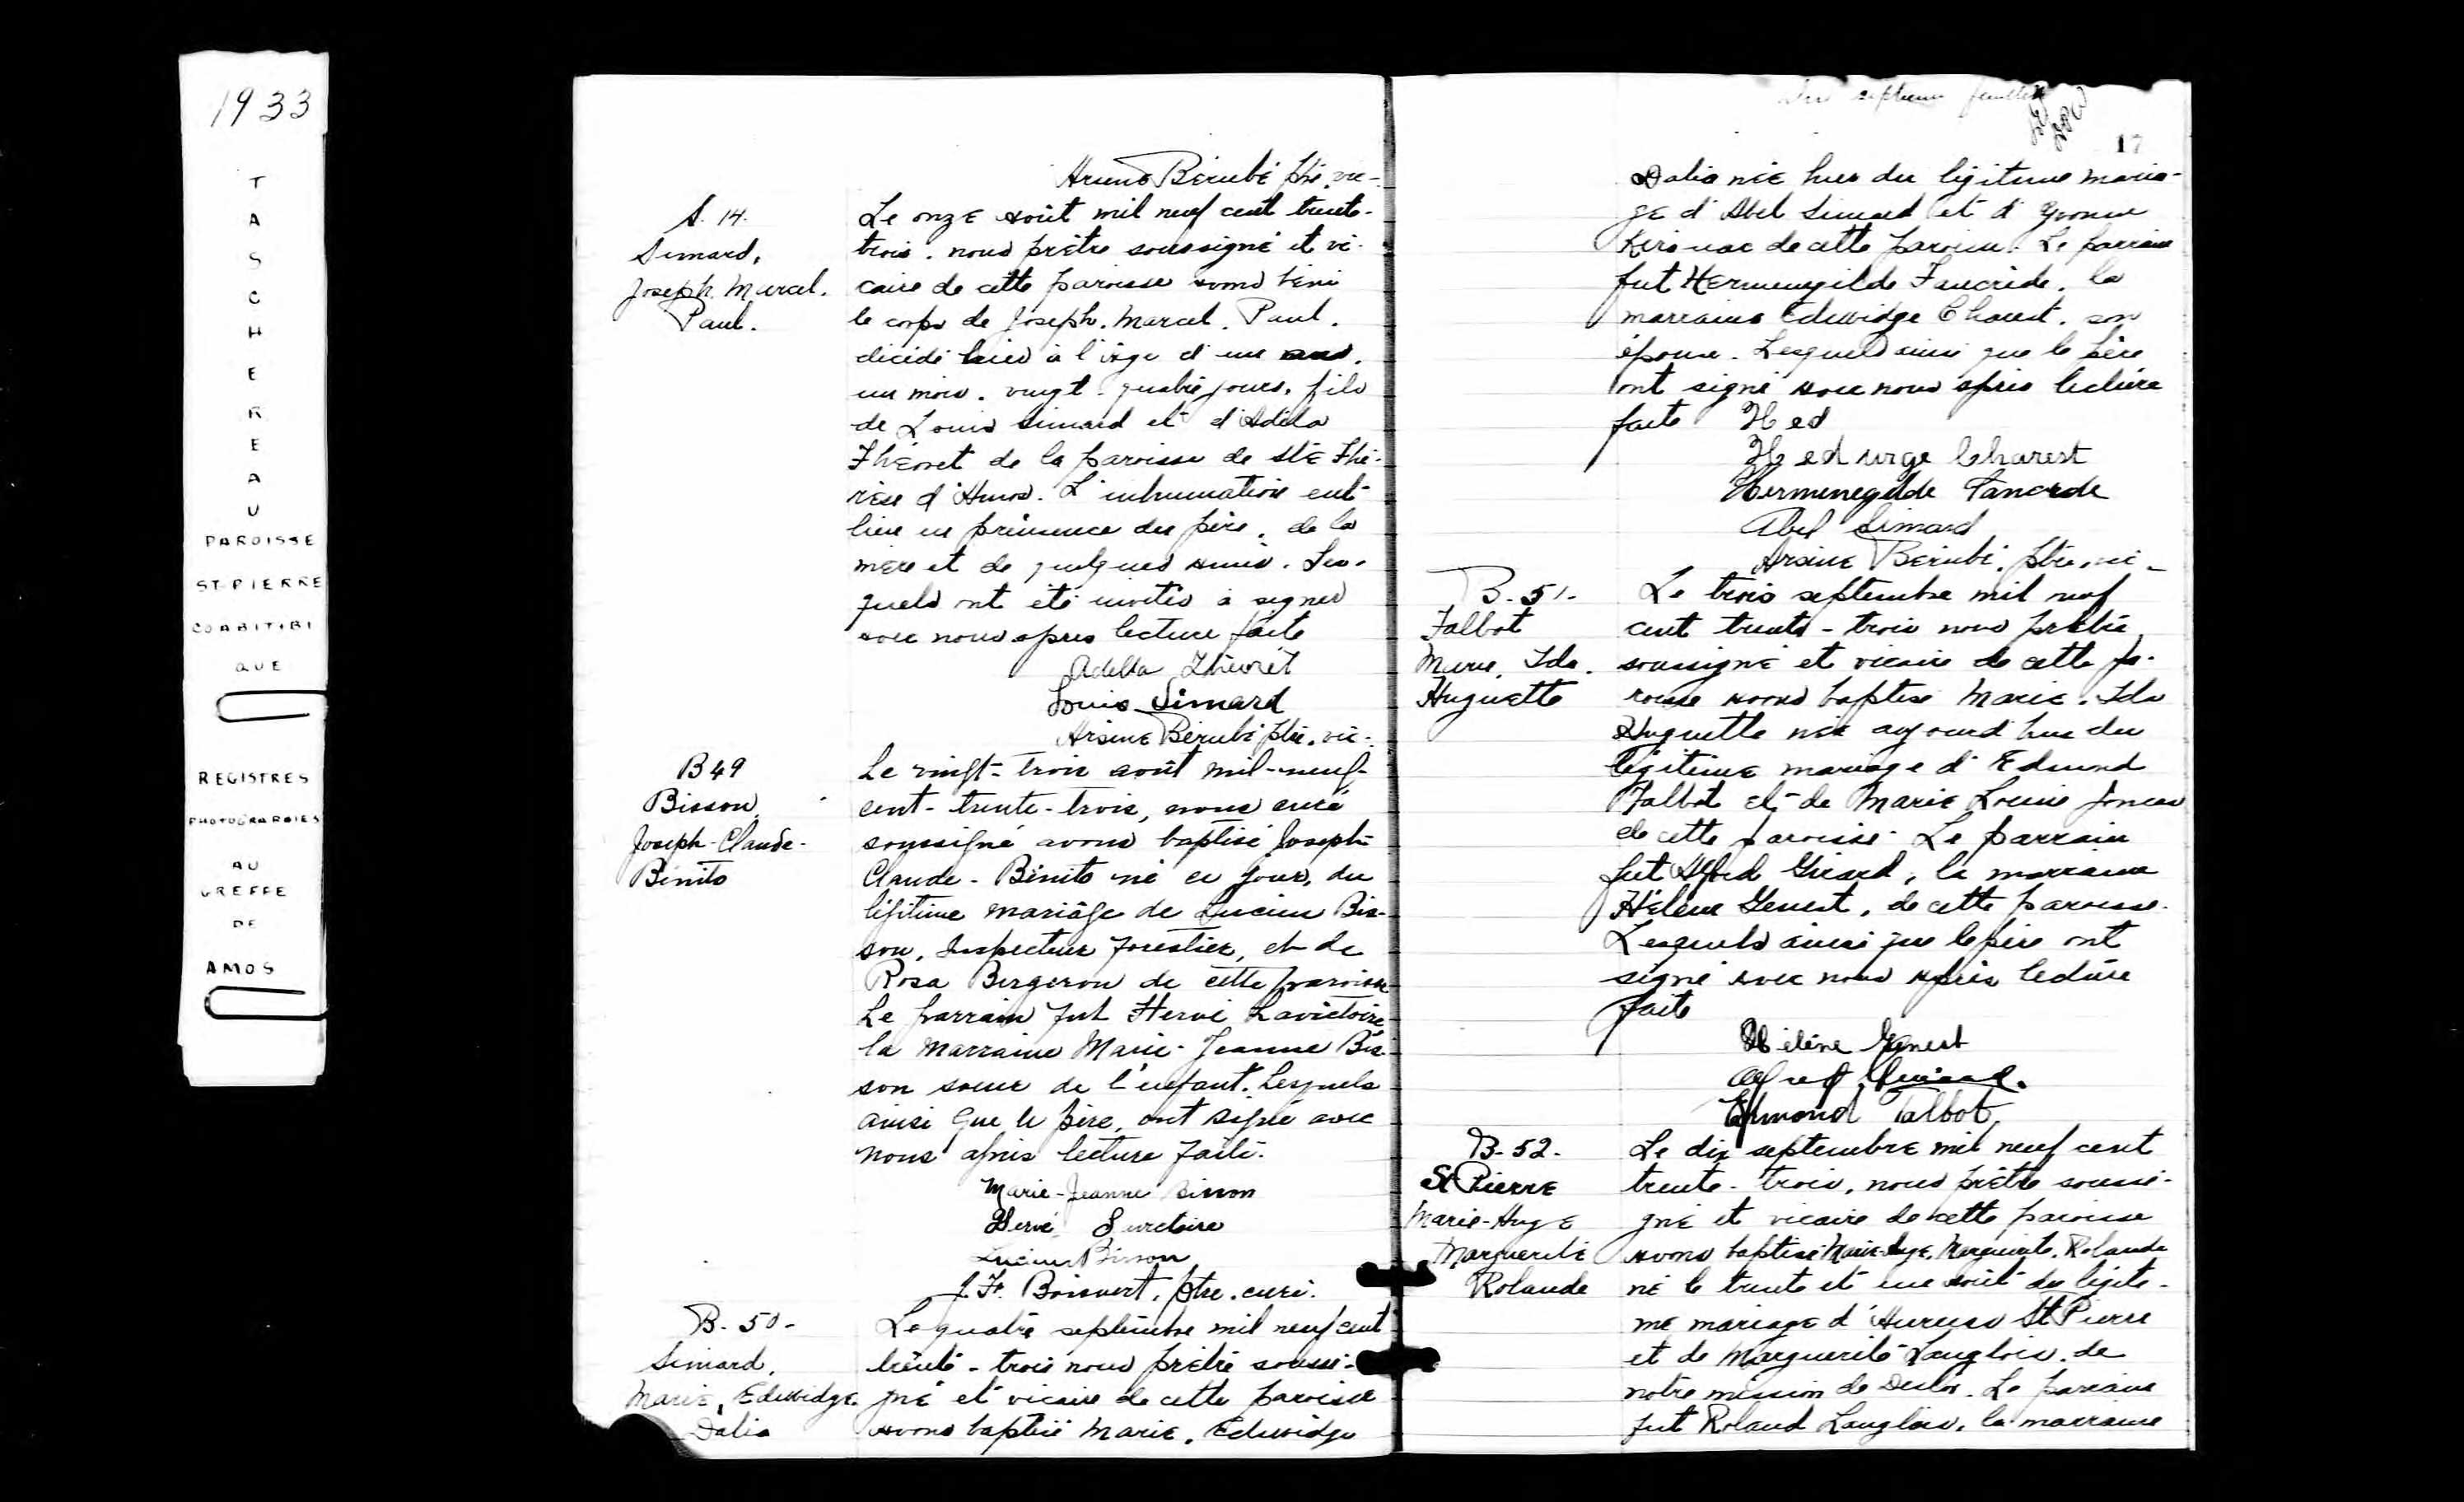 1933
TASCHEREAU
PAROISSE
ST-PIERRE
CO ABITIBI
QUE
REGISTRES
PHOTOGRAPHIES
AU
GREFFE
DE
AMOS
Arsène Bérubé ptre. vic-
S. 14.
Simard,
Joseph. Marcel.
Paul.
Le onze août mil neuf cent trente-
trois. nous prêtre soussigné et vi-
caire de cette paroisse avons béni
le corps de Joseph. Marcel. Paul.
décédé hier à l'âge d'un
un mois. vingt-quatre jours. fils
de Louis Simard et d'Adéla
Théoret de la paroisse de Ste Thé-
rèse d'Amos. L'inhumation eut
lieu en présence du père, de la
mère et de quelques amis. Les-
quels ont été invités à signer
avec nous après lecture faite
Adella Théorêt
Louis Simard
Arsène Bérubé ptre. vic-
B 49
Bisson,
Joseph-Claude-
Bénito
Le vingt-trois août mil-neuf-
cent-trente-trois, nous curé
soussigné avons baptisé Joseph
Claude-Bénito né ce jour, du
légitime mariâge de Lucien Bis-
son, Inspecteur forestier, et de
Rosa Bergeron de cette paroisse
Le parrain fut Hervé Lavictoire
la marraine Marie-Jeanne Bis-
son soeur de l'enfant. Lesquels
ainsi que le père, ont signé avec
nous après lecture faite.
Marie-Jeanne Bisson
Hervé
Lucien Bisson
J. Boisvert, ptre. curé.
B-50-
Simard,
Marie, Edwidge
Dalia
Le quatre septembre mil neuf cent
trente-trois nous prêtre soussi-
gné et vicaire de cette paroisse
avons baptisé Marie, Edwidge
septième feuillet
17
Dalia née hier du légitime maria-
ge d'Abel Simard et d'Yvonne
Kirouac de cette paroisse. Le parrain
fut Hermenegilde Tancrède, la
marraine Edwidge Charest, son
épouse. Lesquels ainsi que le père
ont signé avec nous après lecture
faite Hed
Hedwige Charest
Hermenegilde Tancrde
Abel Simard
Arsène Bérubé, ptre, vic-
B-51-
Talbot
Marie, Ida.
Huguette
Le trois septembre mil neuf
cent trente-trois nous prêtre
soussigné et vicaire de cette pa-
roisse avons baptisé Marie. Ida
Huguette née aujourd'hui du
légitime mariage d'Edmond
Talbot et de Marie Louise Joncas
de cette paroisse. Le parrain
fut Alfred Girard, la marraine
Hélène Genest, de cette paroisse.
Lesquels ainsi que le père ont
signé avec nous après lecture
faite
Hélène Genest
Alfred Girard.
Edmond Talbot
B-52-
St Pierre
Marie-Ange
Marguerite
Rolande
Le dix septembre mil neuf cent
trente-trois, nous prêtre soussi-
gné et vicaire de cette paroisse
avons baptisé Marie-Ange, Marguerite. Rolande
né le trente et une août du légiti-
me mariage d' St Pierre
et de Marguerite Langlois, de
notre mission de . Le parrain
fut Roland Langlois, la marraine